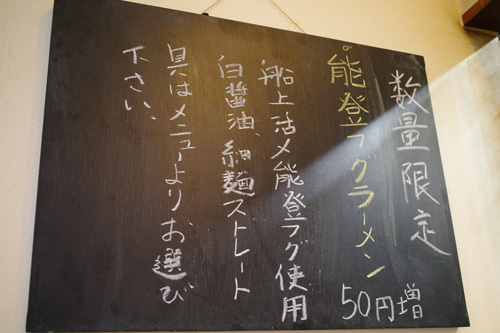 数量限定
能登フグラーメン
50円増
船上活〆能登フグ使用
白醤油、細麺ストレート
具はメニューよりお選び
下さい、